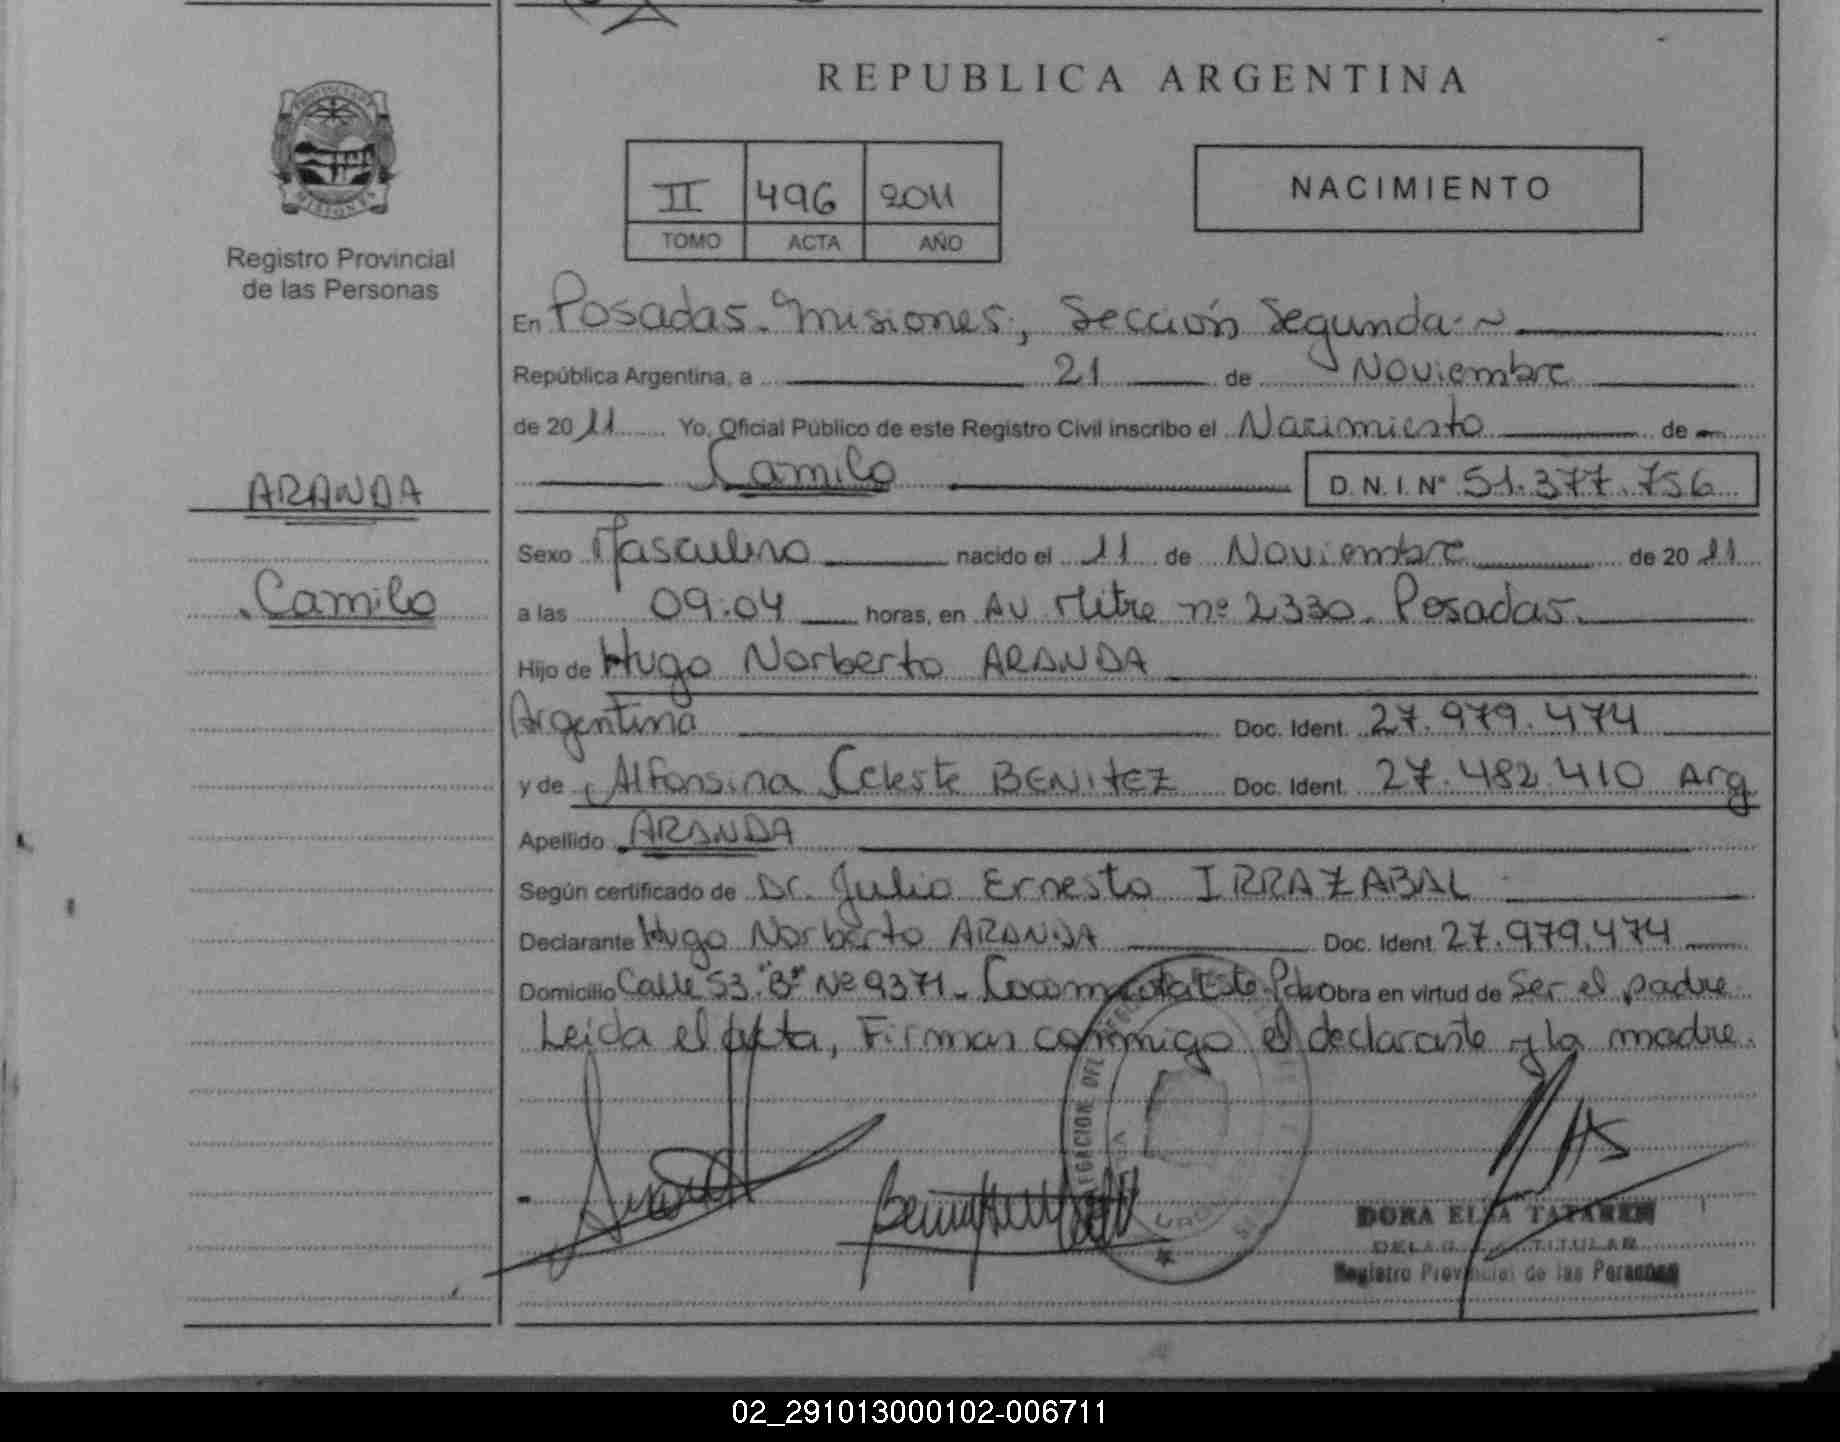 REPUBLICA ARGENTINA
PROVINCIA DE
MISIONES
Registro Provincial
de las Personas
II 496 2011
TOMO ACTA AÑO
NACIMIENTO
En Posadas. Misiones, Sección Segunda.~
República Argentina, a 21 de Noviembre
de 2011 Yo, Oficial Público de este Registro Civil inscribo el Nacimiento de
Camilo D. N. I. N° 51.377.756
ARANDA
Camilo
Sexo Masculino nacido el 11 de Noviembre de 2011
a las 09:04 horas, en Av Mitre nº 2330. Posadas.
Hijo de Hugo Norberto ARANDA
Argentina Doc. Ident. 27.979.474
y de Alfonsina Celeste BENITEZ Doc. Ident. 27.482.410 Arg
Apellido ARANDA
Según certificado de Dr. Julio Ernesto IRRAZABAL
Declarante Hugo Norberto ARANDA Doc. Ident. 27.979.474
Domicilio Calle 53 "B" Nº 9371. Este Obra en virtud de Ser el padre
Leida el acta, Firman conmigo el declarante y la madre.
DORA ELSA
TITULAR
Registro Provincial de las Personas
02_291013000102-006711